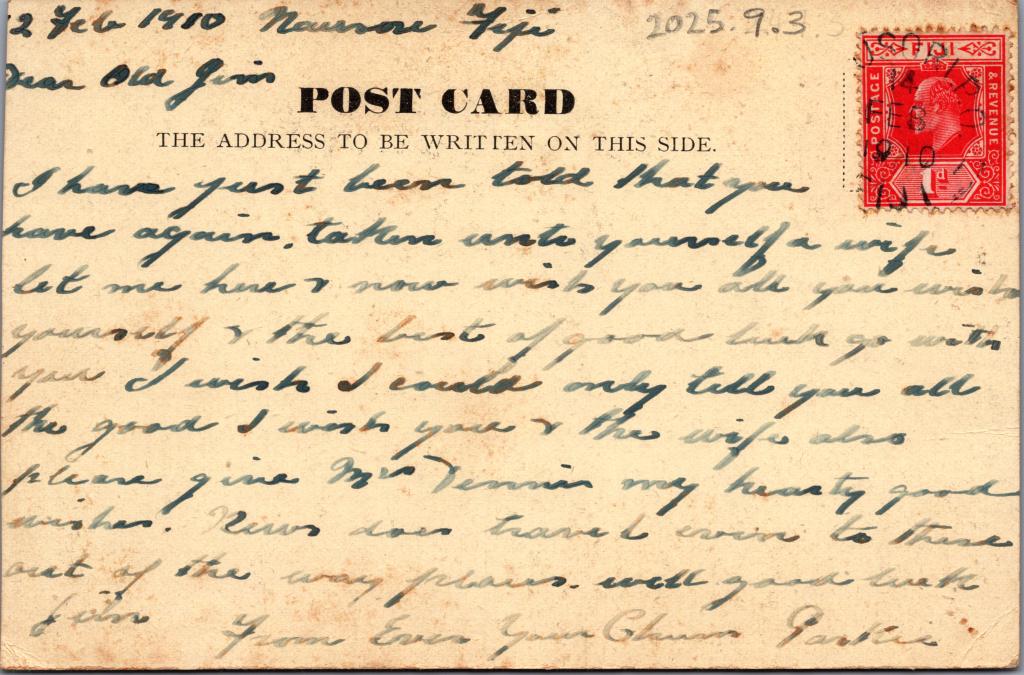 2 Feb 1910 Nausori Fiji
2025.9.3
Dear Old Jim
POST CARD
THE ADDRESS TO BE WRITTEN ON THIS SIDE.
FIJI
POSTAGE
& REVENUE
1d
FEB
1910
I have just been told that you
have again, taken unto yourself a wife
let me here & now wish you all you wish
yourself & the best of good luck go with
you I wish I could only tell you all
the good I wish you & the wife also
please give Mrs Dennis my hearty good
wishes. News does travel even to these
out of the way places. well good luck
Jim From Ever Your Chum Parkie